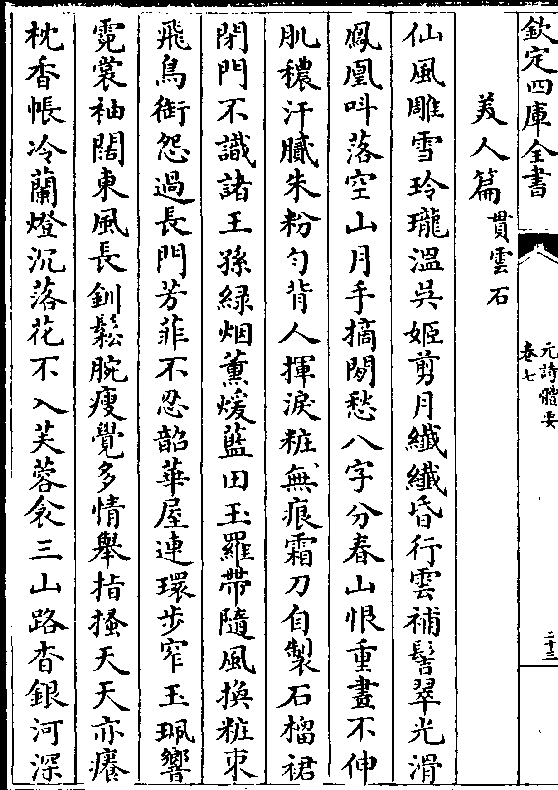 欽定四庫全書
元詩體要
卷七
二十三
美人篇 貫雲石
仙風雕雪玲瓏溫吳姬剪月纖纖昏行雲補髻翠光滑
鳳凰叫落空山月手摘閒愁八字分春山恨重畫不伸
肌穠汗膩朱粉勻背人揮淚粧無痕霜刀自製石榴裙
閉門不識諸王孫綠烟薰煖藍田玉羅帶隨風換粧束
飛鳥銜怨過長門芳菲不忍韶華屋連環步窄玉珮響
霓裳袖闊東風長釧鬆腕瘦覺多情舉指搔天天亦癢
枕香帳冷蘭燈沉落花不入芙蓉衾三山路杳銀河深